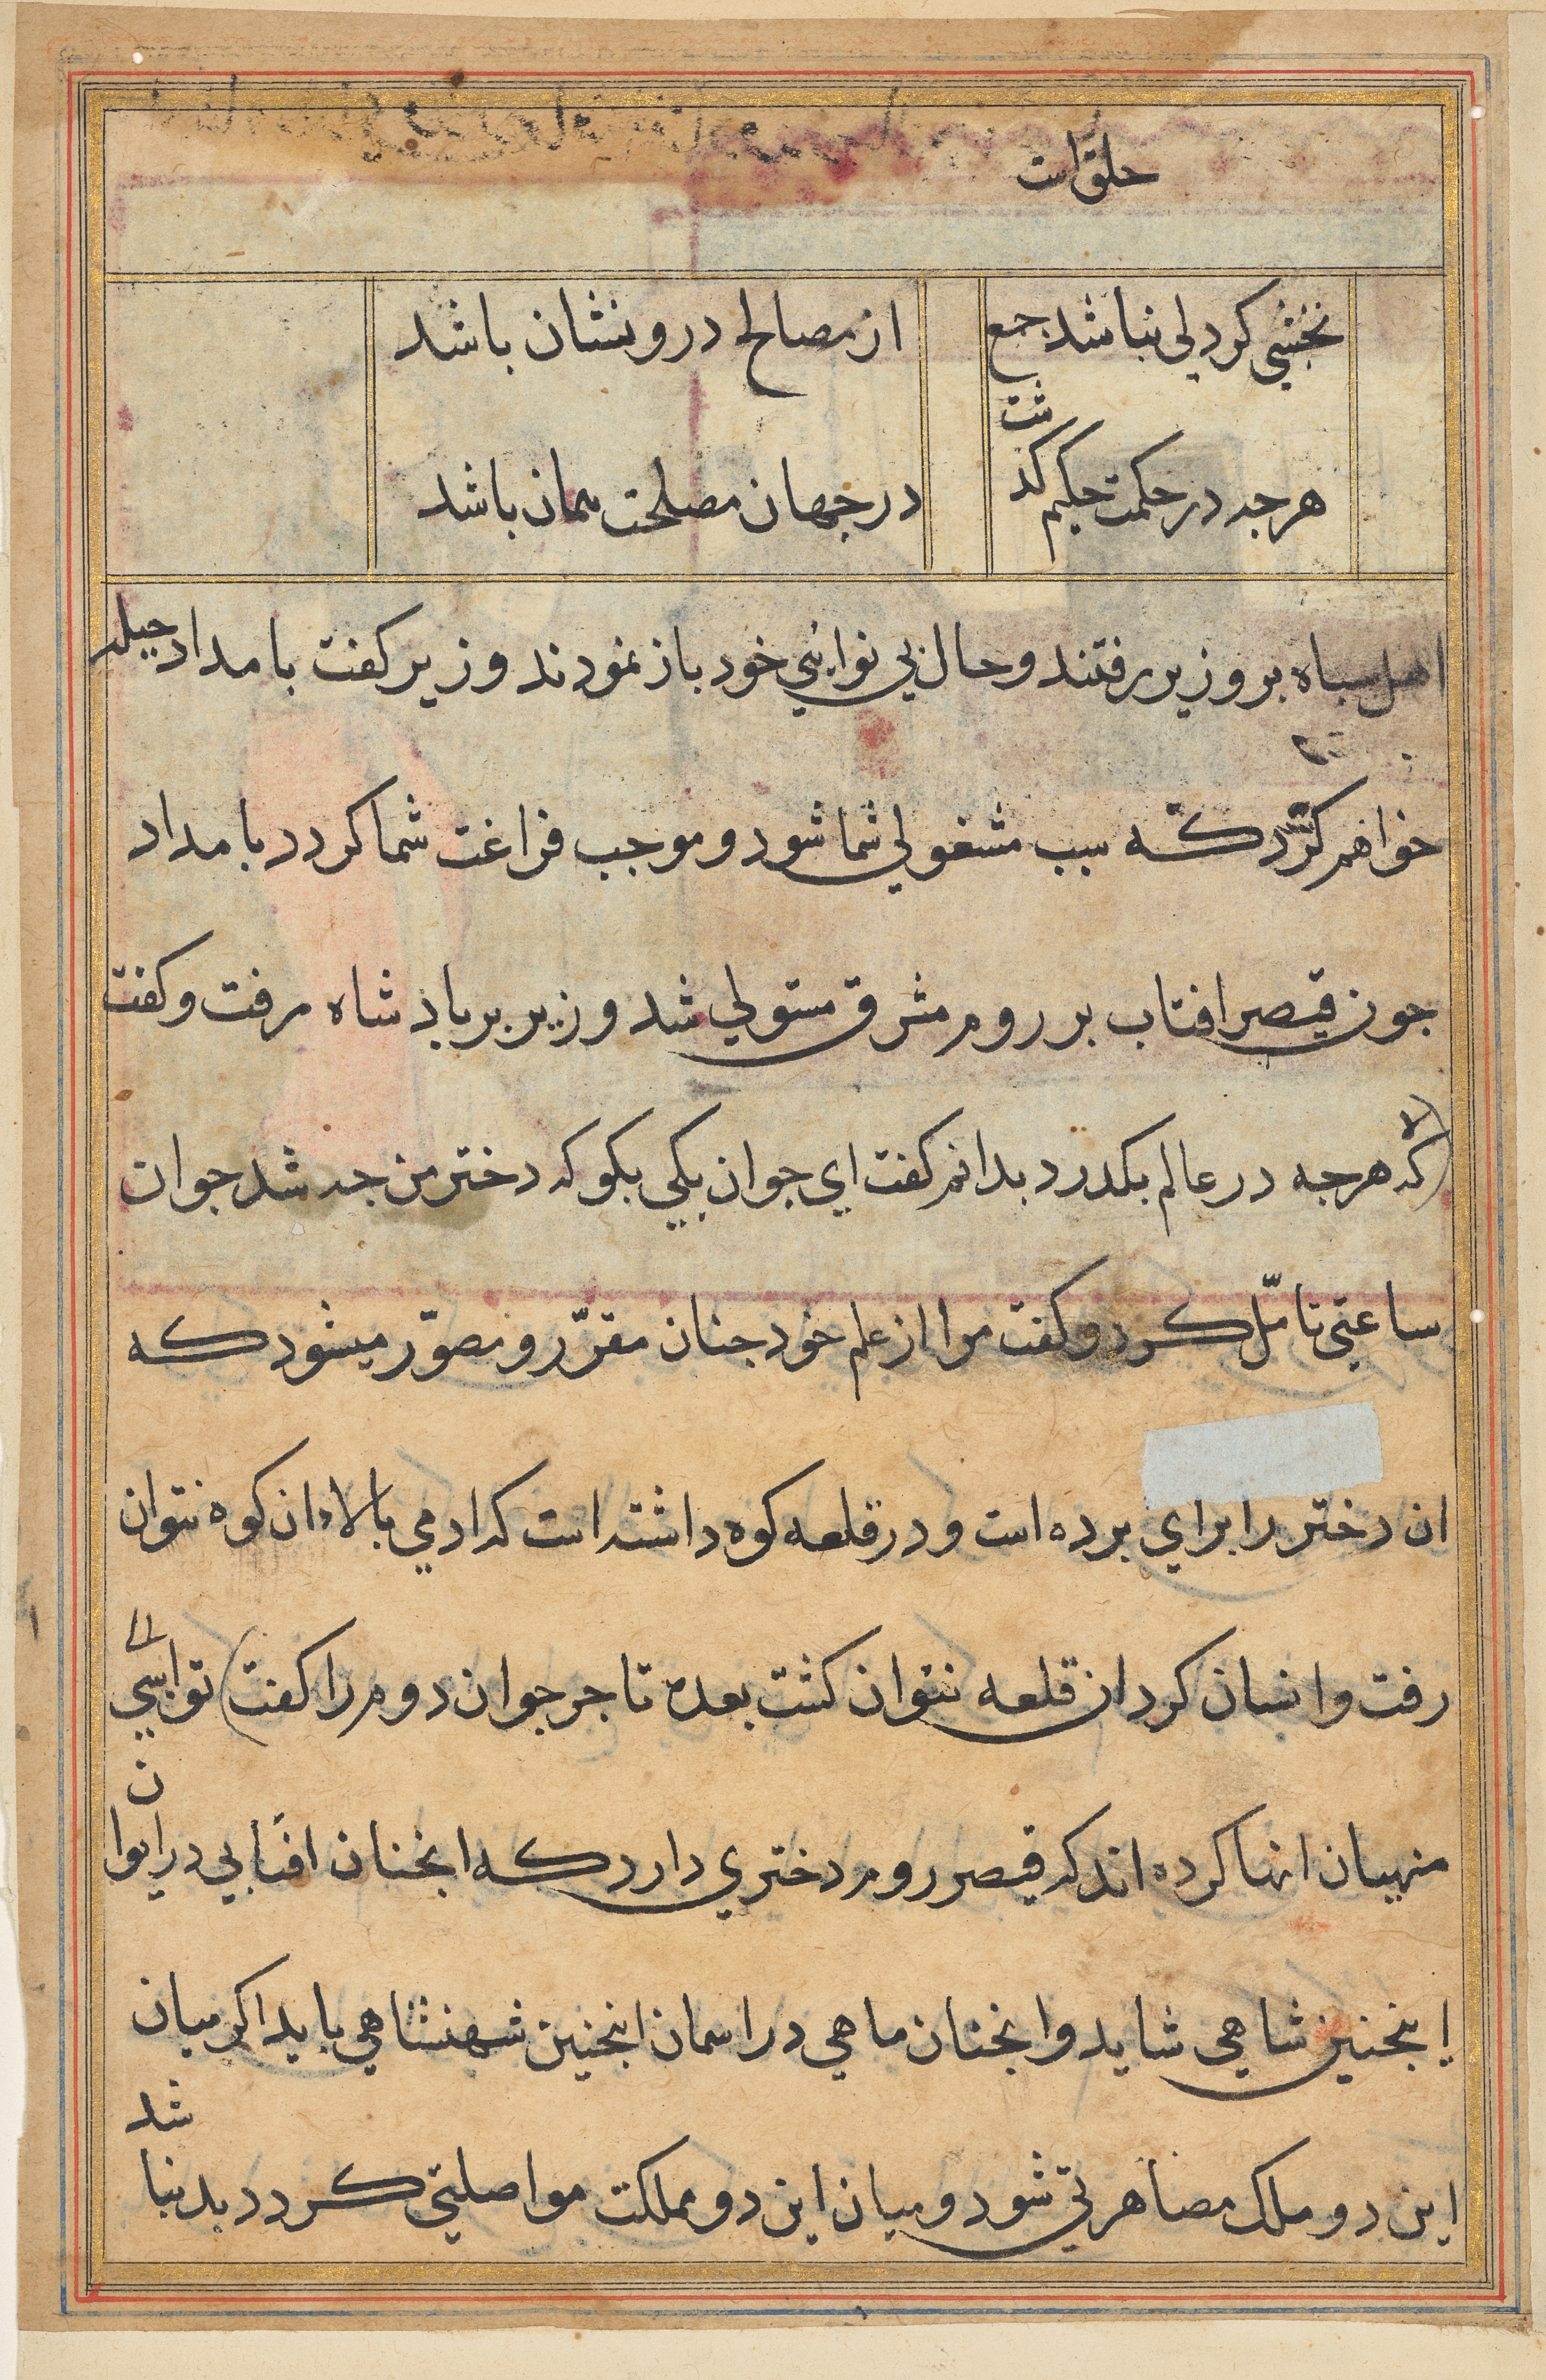 خلق است
نخشبی کر دلی نباشد جمع
از مصالح درو نشان باشد
هرجه در حکمت حکیم کذشت
در جهان مصلحت همان باشد
اهل سباه بر وزیر رفتند و حال بی نوایی خود باز نمودند وزیر کفت بامداد حیله
خواهم کرد که سبب مشغولی شما شود و موجب فراغت شما کردد بامداد
جون قیصر افتاب بر روم مشرق مستولی شد وزیر بر باذشاه رفت و کفت
که هرجه در عالم بکدرد بدانم کفت ای جوان یکی بکو که دختر من جه شد جوان
ساعتی تامّل کرد و کفت مرا از علم خود جنان مقرّر و مصوّر میشود که
ان دختر را برای برده است و در قلعه کوه داشته است که ادمی بالاء ان کوه نتوان
رفت و انسان کرد ان قلعه نتوان کشت بعده تاجر جوان دوم را کفت تو
منهیان انها کرده اند که قیصر روم دختری دارد که انجنان افتابی در ایوان
اینجنین شاهی شاید و انجنان ماهی در اسمان اینجنین شهنشاهی باید اکر میان
این دو ملک مصاهرتی شود و میان این دو مملکت مواصلتی کردد بد نباشد